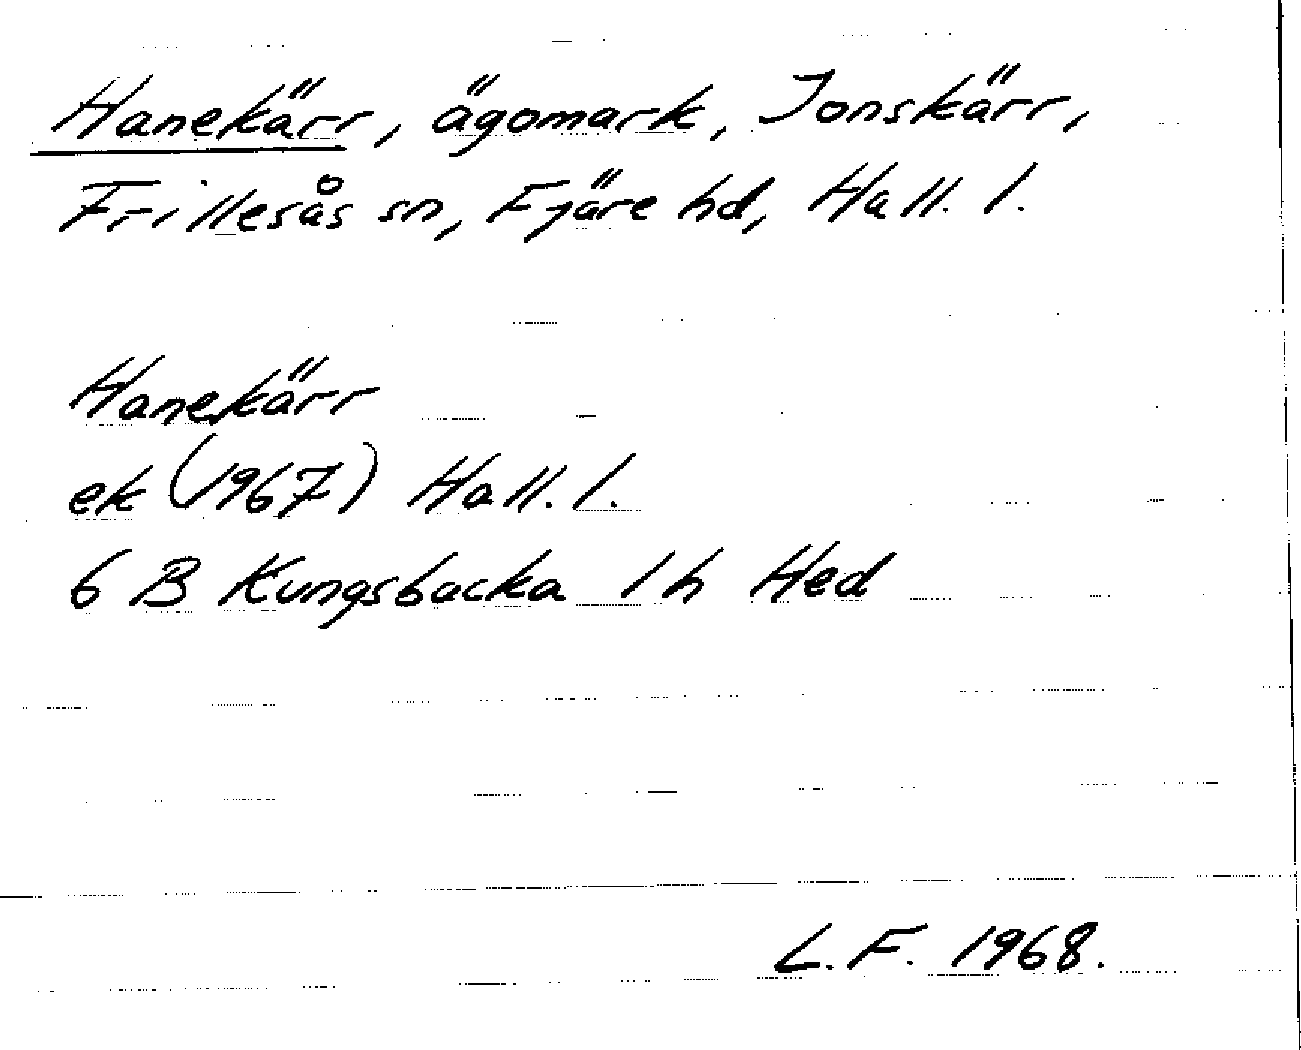 Hanekärr, ägomark, Jonskärr,
Frillesås sn, Fjäre hd, Hall. l.
Hanekärr
ek (1967) Hall. l.
6 B Kungsbacka 1 h Hed
L. F. 1968.